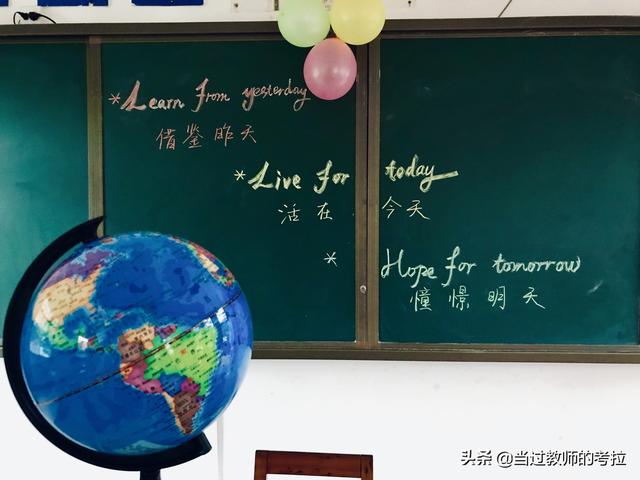 *Learn from yesterday
借鉴昨天
*Live for today
活在今天
* Hope for tomorrow
憧憬明天
头条 @当过教师的考拉